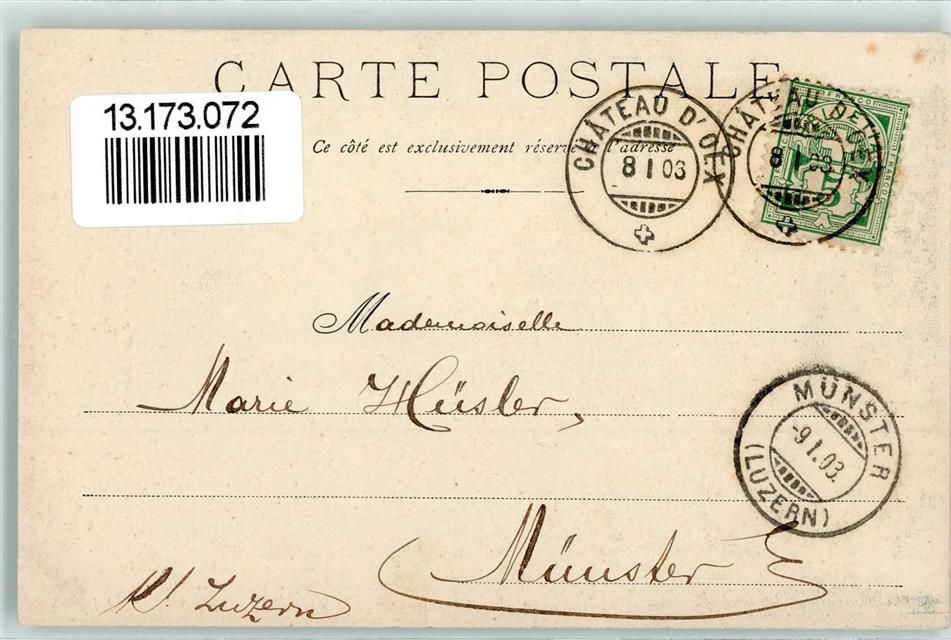 CARTE POSTALE
13.173.072
Ce côté est exclusivement réservé à l'adresse
CHÂTEAU D'OEX
8 I 03
CHÂTEAU D'OEX
8 I 03
FRANCO
Mademoiselle
Marie Hüsler,
MÜNSTER
-9 I. 03.
(LUZERN)
Münster
Kt. Luzern